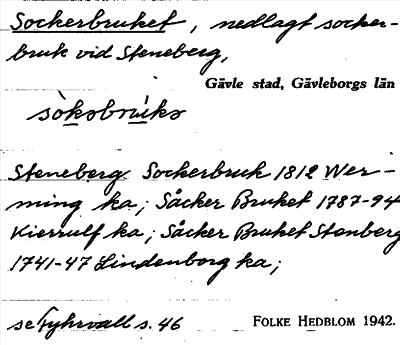 Sockerbruket, nedlagt socker-
bruk vid Steneberg,
Gävle stad, Gävleborgs län
sòkobrúks
Steneberg Sockerbruk 1812 Wer-
ming ka; Såcker Bruket 1787-94
Kierrulf ka; Såcker Bruket Stenberg
1741-47 Lindenborg ka;
se Fyhrvall s. 46
FOLKE HEDBLOM 1942.